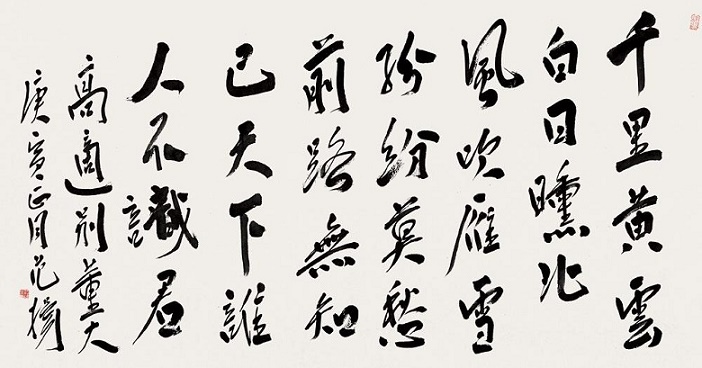 千里黄雲
白日曛北
風吹雁雪
紛紛莫愁
前路無知
己天下誰
人不識君
高適别董大
庚寅正月范揚